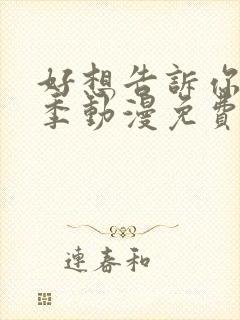 好想告訴你
季動漫免費
連春和